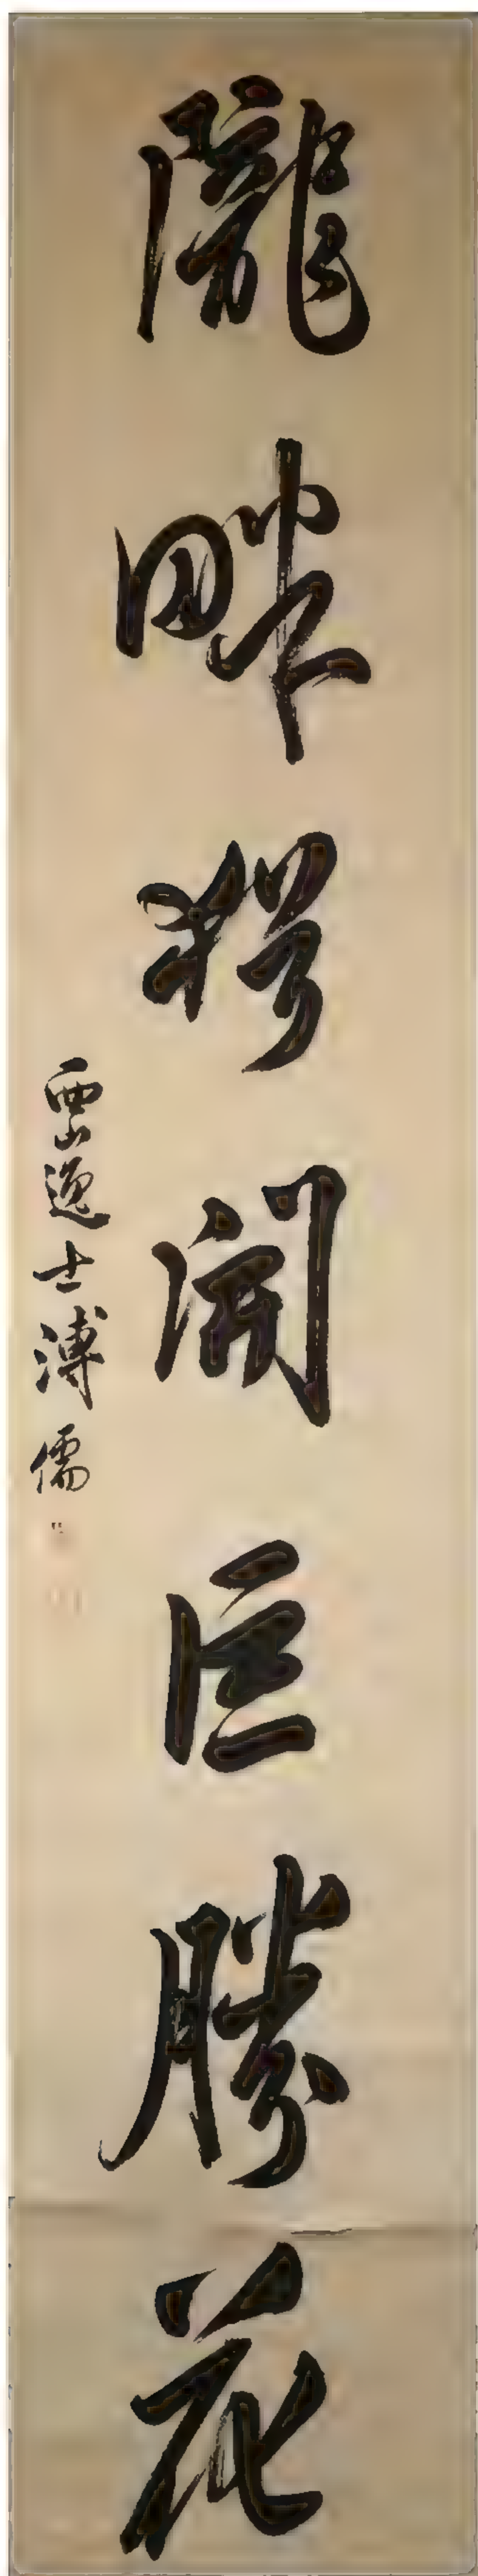 隴畔猶開巨勝花
西山逸士溥儒